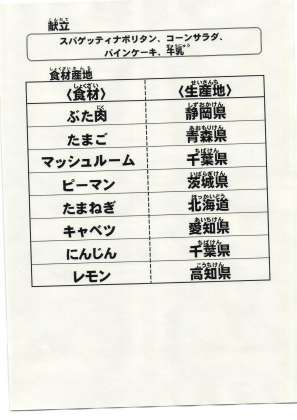 献立
スパゲッティナポリタン、コーンサラダ、
パインケーキ、牛乳
食材産地
〈食材〉 〈生産地〉
ぶた肉 静岡県
たまご 青森県
マッシュルーム 千葉県
ピーマン 茨城県
たまねぎ 北海道
キャベツ 愛知県
にんじん 千葉県
レモン 高知県